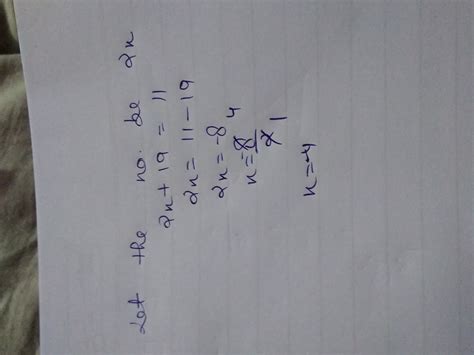 Let the no. be 2x
2x + 19 = 11
2x = 11 - 19
2x = -8
x = -8/2 4 1
x = -4